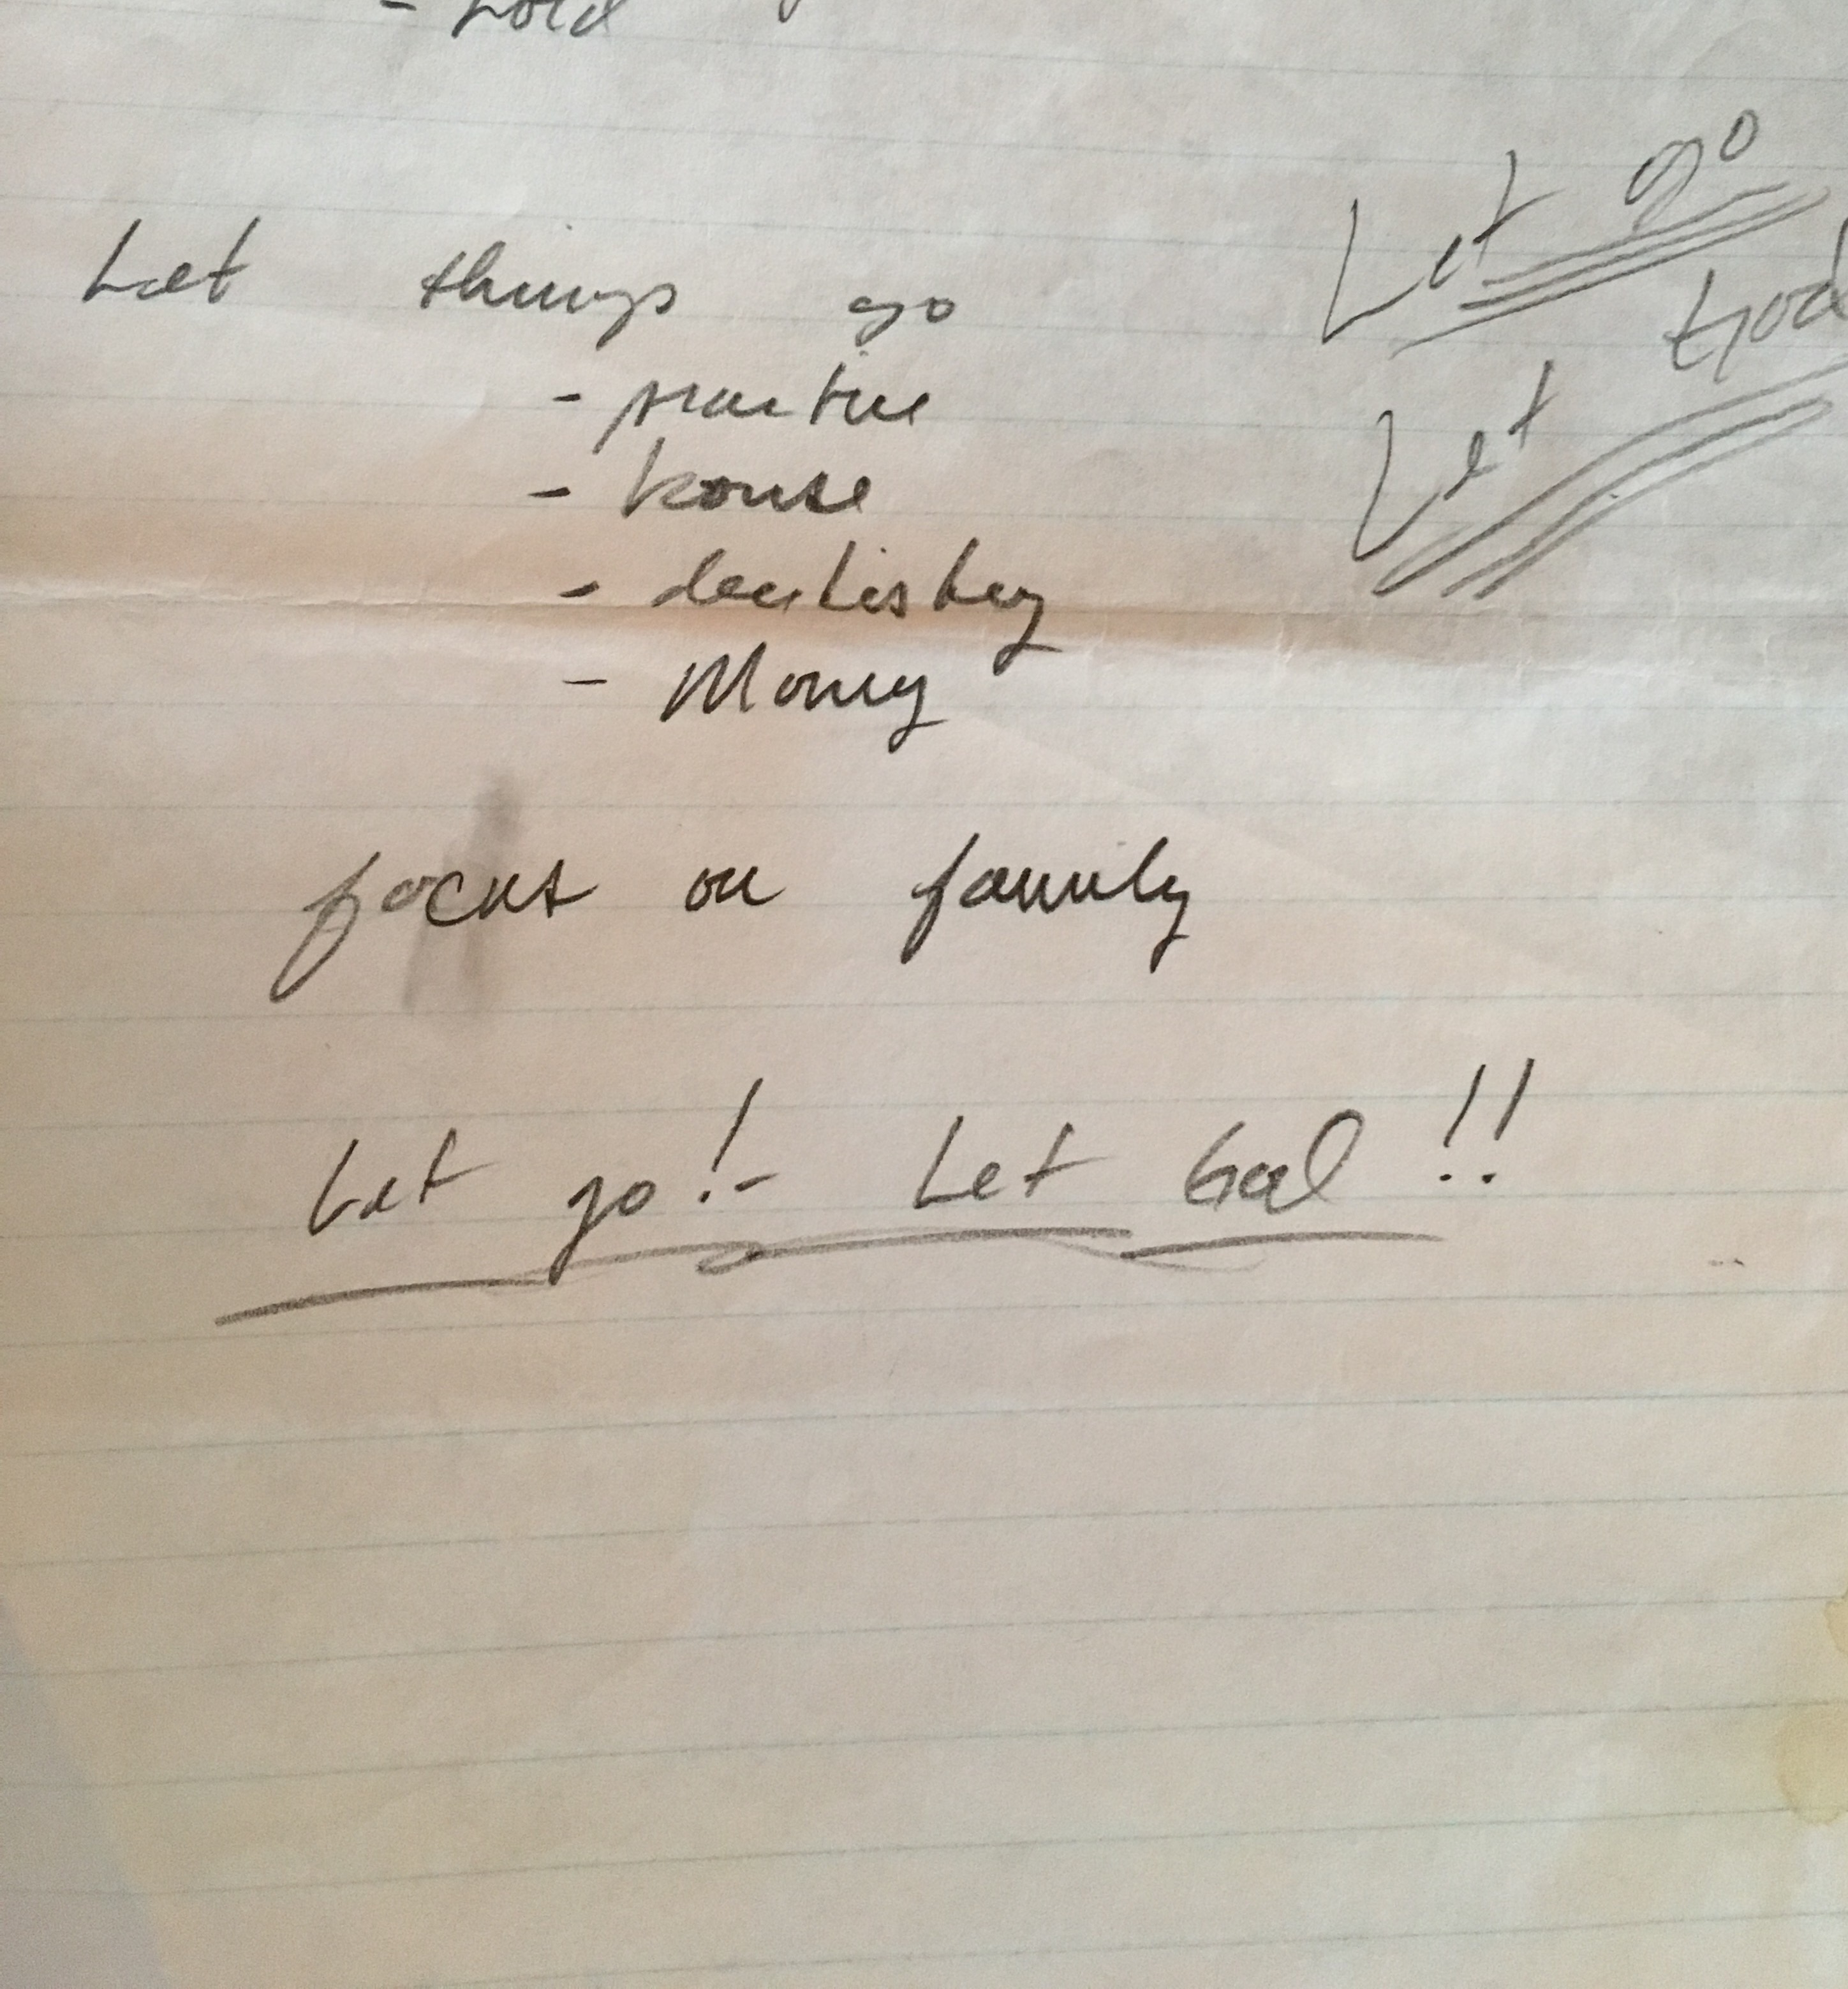 Let things go
- practice
- house
- dentistry
- Money
focus on family
Let go!- Let God!!
Let go
Let God